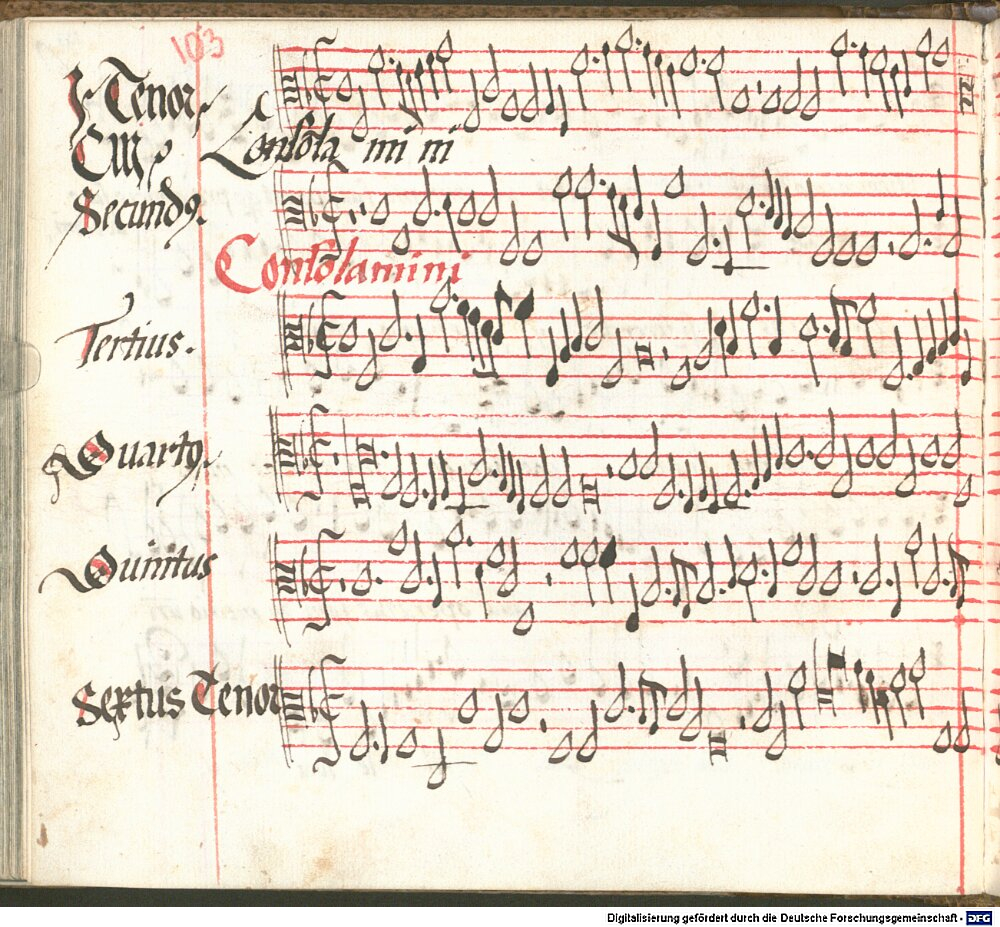 103
Tenor
Consõla mi ni
Secundꝰ.
Consõlamini
Tertius.
Quartꝰ.
Quintus
Sextus Tenor
Digitalisierung gefördert durch die Deutsche Forschungsgemeinschaft - DFG